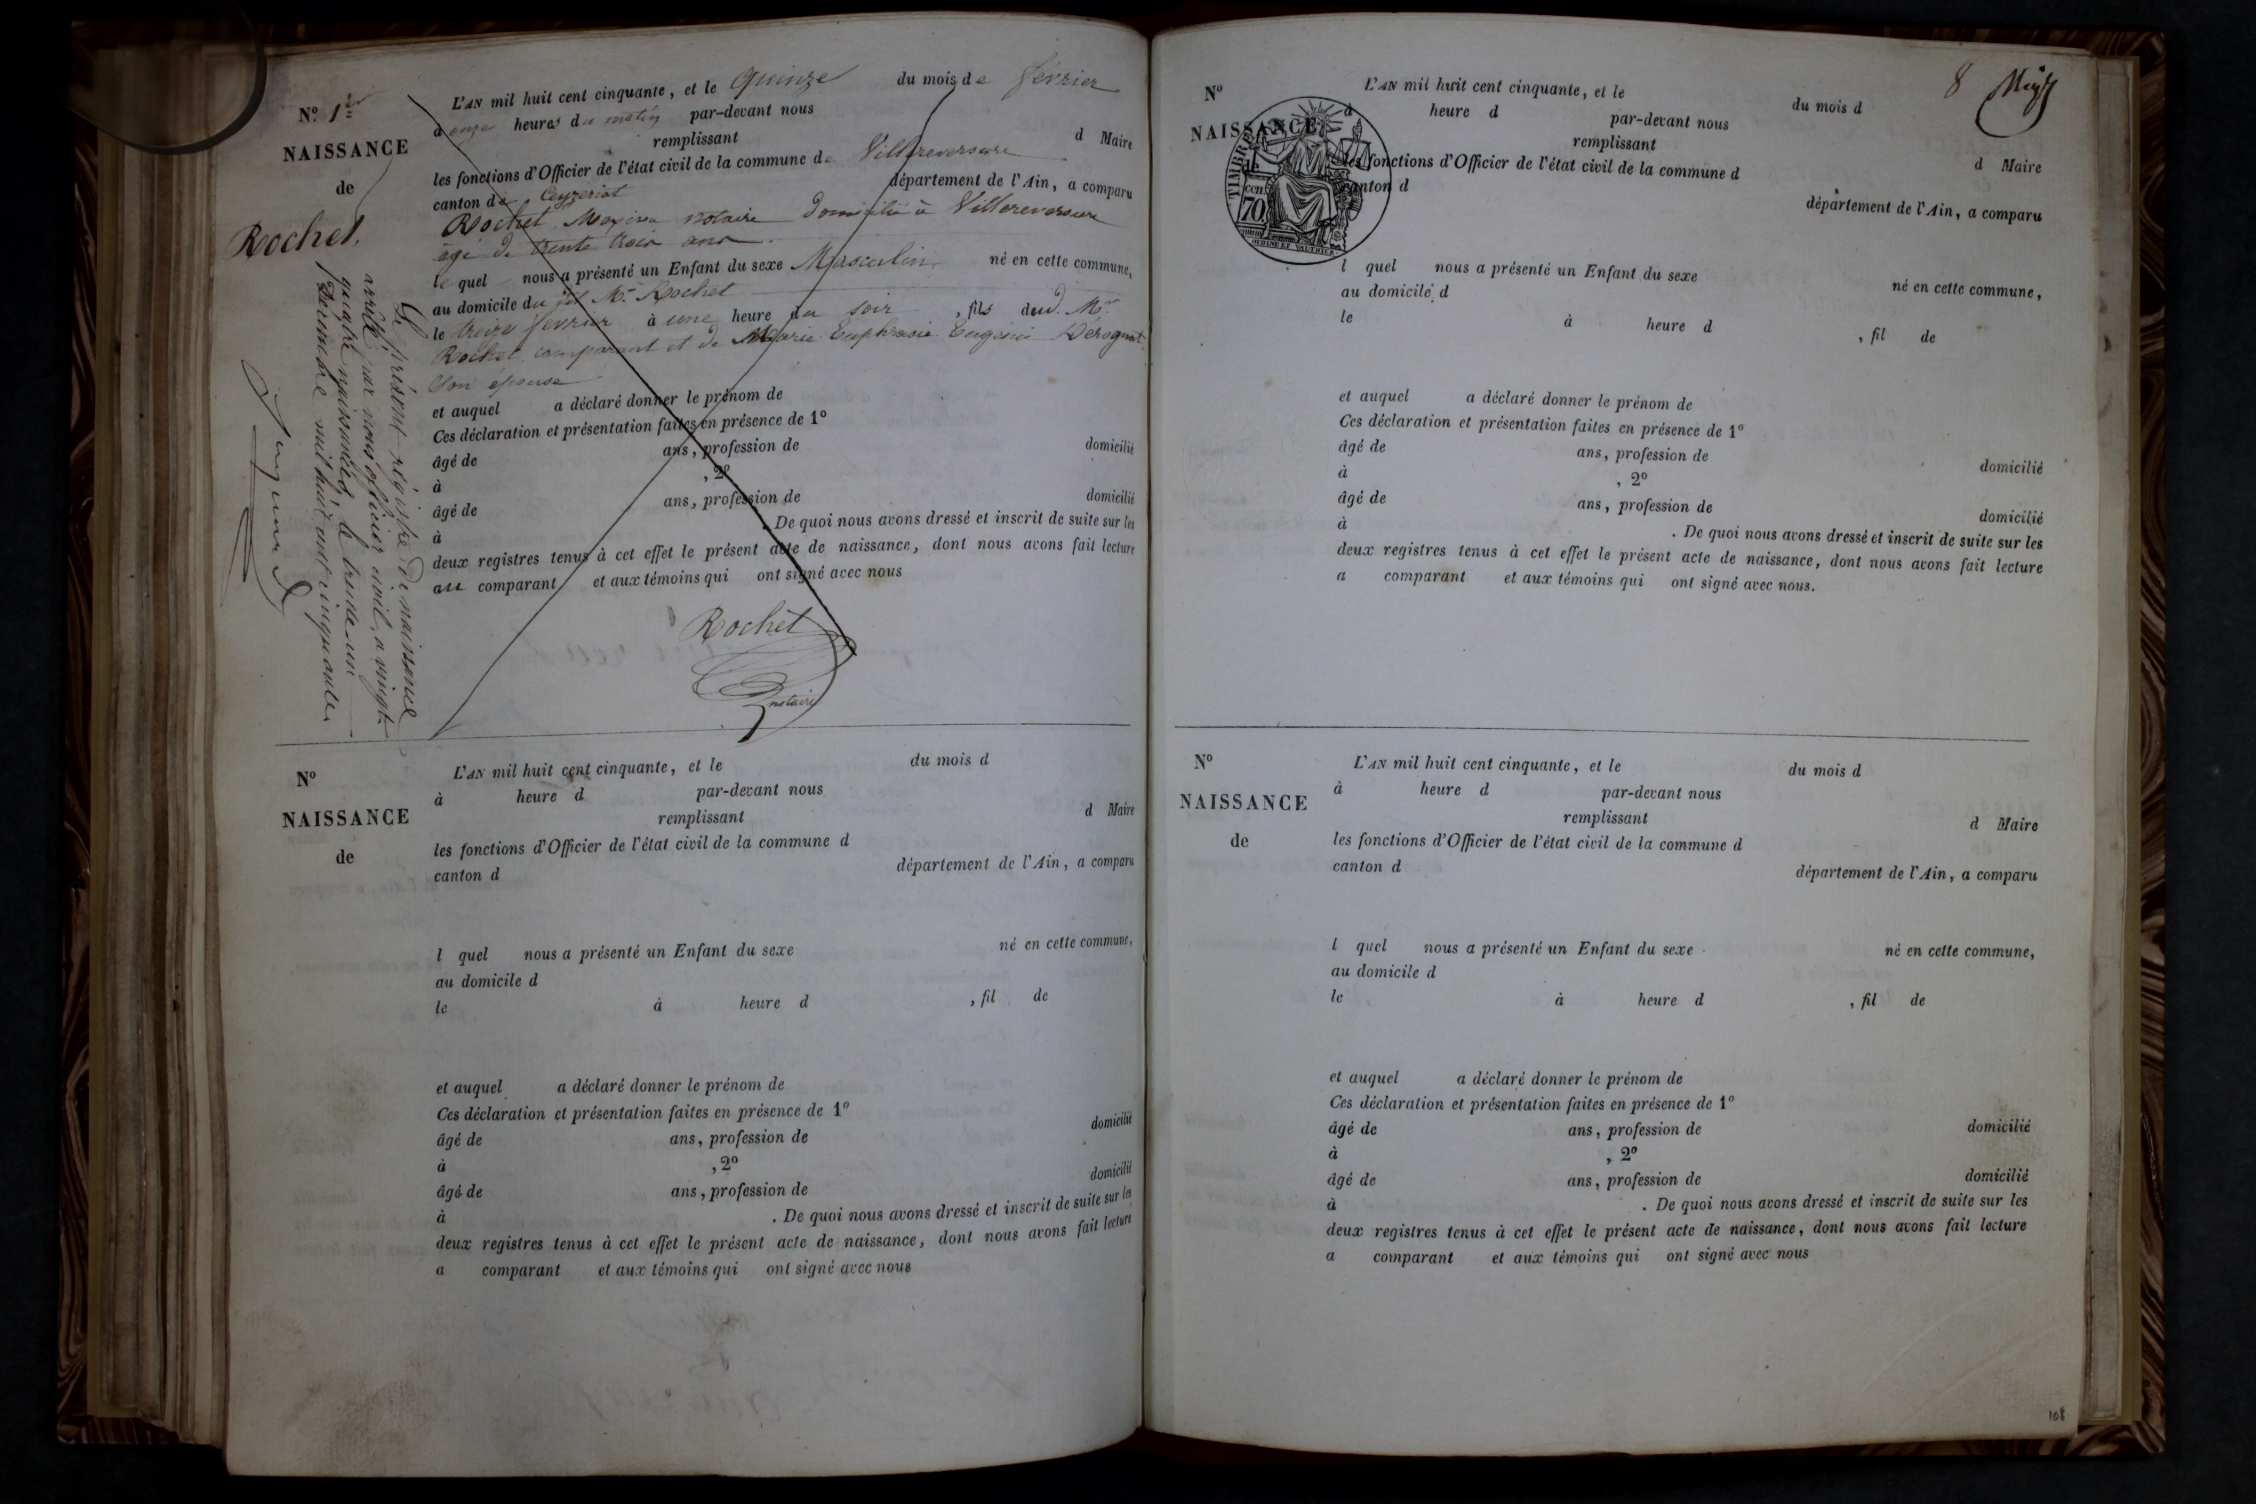 N.º 1er
NAISSANCE
de
Rochet,
L'AN mil huit cent cinquante, et le quinze du mois de février
à onze heures du matin par-devant nous
remplissant d Maire
les fonctions d'Officier de l'état civil de la commune de Villereversure
canton de Ceyzeriat département de l'Ain, a comparu
Rochet notaire domicilié à Villereversure
âgé de trente trois ans
le quel nous a présenté un Enfant du sexe Masculin né en cette commune,
au domicile du dit Mr Rochet
le treize février à une heure du soir, fils dud. Mr
Rochet comparant et de Marie Euphrasie Eugénie Dérognat
son épouse
et auquel a déclaré donner le prénom de
Ces déclaration et présentation faites en présence de 1º
âgé de ans, profession de domicilié
à , 2º
âgé de ans, profession de domicilié
à . De quoi nous avons dressé et inscrit de suite sur les
deux registres tenus à cet effet le présent acte de naissance, dont nous avons fait lecture
au comparant et aux témoins qui ont signé avec nous
Rochet
notaire
Le présent régistre de naissance
arrêté par nous officier civil, a vingt
quatre naissances, le trente-un
Décembre mil huit cent cinquante.
Nº
NAISSANCE
de
L'AN mil huit cent cinquante, et le du mois d
à heure d par-devant nous
remplissant d Maire
les fonctions d'Officier de l'état civil de la commune d
canton d département de l'Ain, a comparu
l quel nous a présenté un Enfant du sexe né en cette commune,
au domicile d
le à heure d , fil de
et auquel a déclaré donner le prénom de
Ces déclaration et présentation faites en présence de 1º
âgé de ans, profession de domicilié
à , 2º
âgé de ans, profession de domicilié
à . De quoi nous avons dressé et inscrit de suite sur les
deux registres tenus à cet effet le présent acte de naissance, dont nous avons fait lecture
a comparant et aux témoins qui ont signé avec nous
8
Nº
NAISSANCE
de
TIMBRE
70
CEN
L'AN mil huit cent cinquante, et le du mois d
à heure d par-devant nous
remplissant d Maire
les fonctions d'Officier de l'état civil de la commune d
canton d département de l'Ain, a comparu
l quel nous a présenté un Enfant du sexe né en cette commune,
au domicile d
le à heure d , fil de
et auquel a déclaré donner le prénom de
Ces déclaration et présentation faites en présence de 1º
âgé de ans, profession de domicilié
à , 2º
âgé de ans, profession de domicilié
à . De quoi nous avons dressé et inscrit de suite sur les
deux registres tenus à cet effet le présent acte de naissance, dont nous avons fait lecture
a comparant et aux témoins qui ont signé avec nous.
Nº
NAISSANCE
de
L'AN mil huit cent cinquante, et le du mois d
à heure d par-devant nous
remplissant d Maire
les fonctions d'Officier de l'état civil de la commune d
canton d département de l'Ain, a comparu
l quel nous a présenté un Enfant du sexe né en cette commune,
au domicile d
le à heure d , fil de
et auquel a déclaré donner le prénom de
Ces déclaration et présentation faites en présence de 1º
âgé de ans, profession de domicilié
à , 2º
âgé de ans, profession de domicilié
à . De quoi nous avons dressé et inscrit de suite sur les
deux registres tenus à cet effet le présent acte de naissance, dont nous avons fait lecture
a comparant et aux témoins qui ont signé avec nous
108